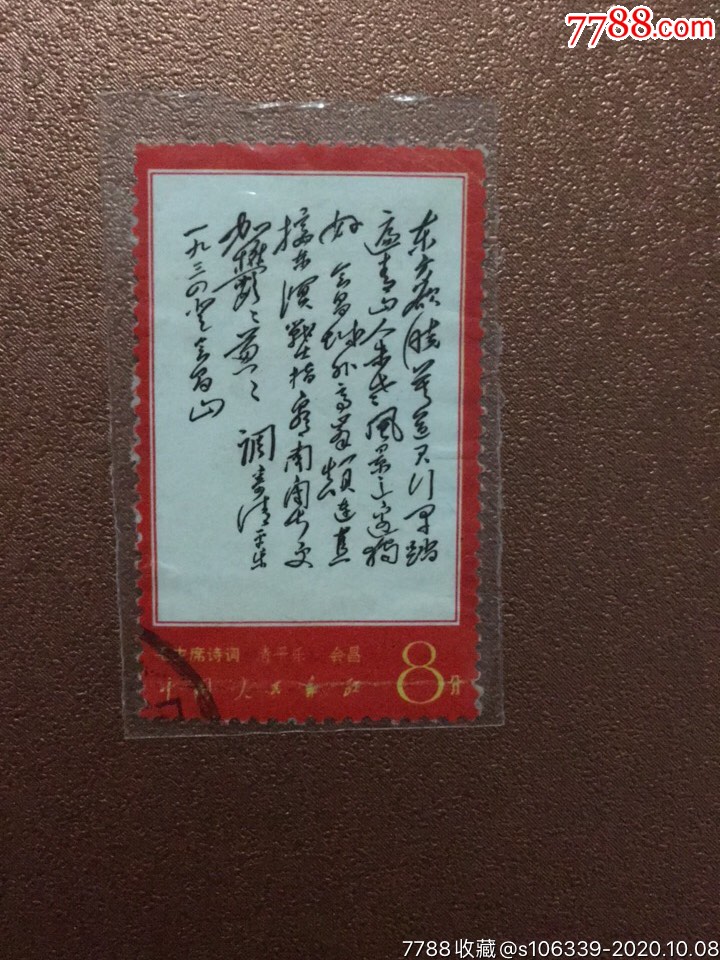 7788.com
东方欲晓莫道君行早踏
遍青山人未老风景这边独
好 会昌城外高峰颠连直
接东溟战士指看南粤更
加鬱〻葱〻 调寄清平乐
一九三四登会昌山
毛主席诗词 清平乐 会昌
中国人民邮政
8分
7788收藏@s106339-2020.10.08